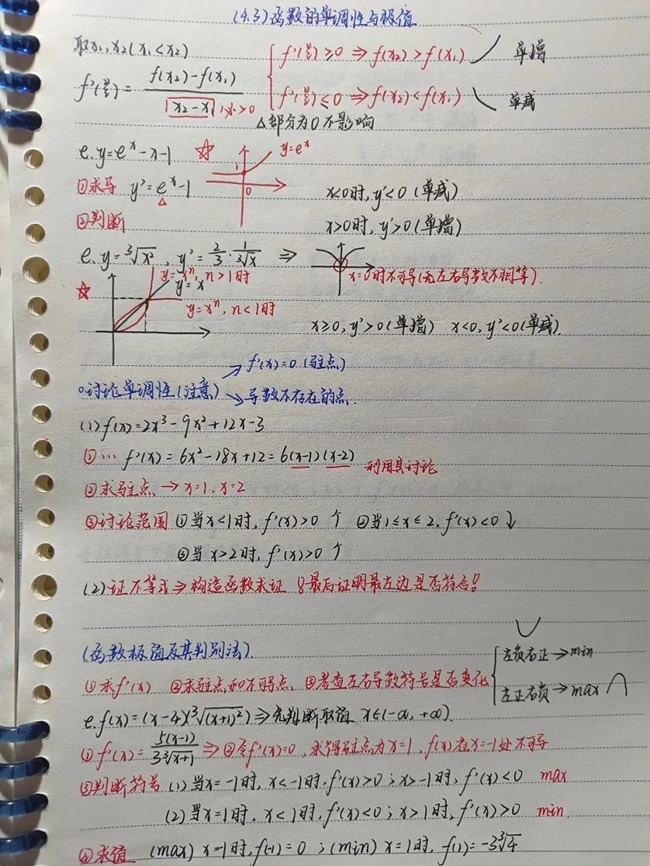 (4.3)函数的单调性与极值
取x₁,x₂(x₁<x₂)
f'(ξ)=f(x₂)-f(x₁)/x₂-x₁ >0
f'(ξ)≥0⇒f(x₂)>f(x₁) 单增
f'(ξ)≤0⇒f(x₂)<f(x₁) 单减
△部分为0不影响
e.y=eˣ-x-1 ☆ y=eˣ
①求导 y'=eˣ-1 x<0时,y'<0(单减)
②判断 x>0时,y'>0(单增)
e.y=³√x², y'=2/3·1/³√x ⇒
x=0时不可导(左右导数不相等).
☆ y=xⁿ,n>1时
y=x
y=xⁿ,n<1时
x≥0,y'>0(单增) x<0,y'<0(单减).
讨论单调性(注意) ↗f'(x)=0(驻点)
↘导数不存在的点.
(1)f(x)=2x³-9x²+12x-3
①… f'(x)=6x²-18x+12=6(x-1)(x-2) 利用其讨论
②求驻点→x=1,x=2
③讨论范围 ①当x<1时,f'(x)>0↑ ②当1≤x≤2,f'(x)<0↓
③当x>2时,f'(x)>0↑
(2)证不等式⇒构造函数求证 !最后证明最左边是否符合!
(函数极值及其判别法).
①求f'(x) ②求驻点和不可导点、③考查左右导数符号是否变化
左负右正→min
左正右负→max
e.f(x)=(x-4)³√(x+1)²⇒先判断取值 x∈(-∞,+∞).
①f'(x)=5(x-1)/3³√x+1⇒②令f'(x)=0,求得驻点为x=1,f(x)在x=-1处不可导
③判断符号(1)当x=-1时,x<-1时.f'(x)>0;x>-1时,f'(x)<0 max
(2)当x=1时,x<1时.f'(x)<0;x>1时,f'(x)>0 min.
④求值 (max) x=-1时,f(-1)=0;(min) x=1时,f(1)=-3³√4